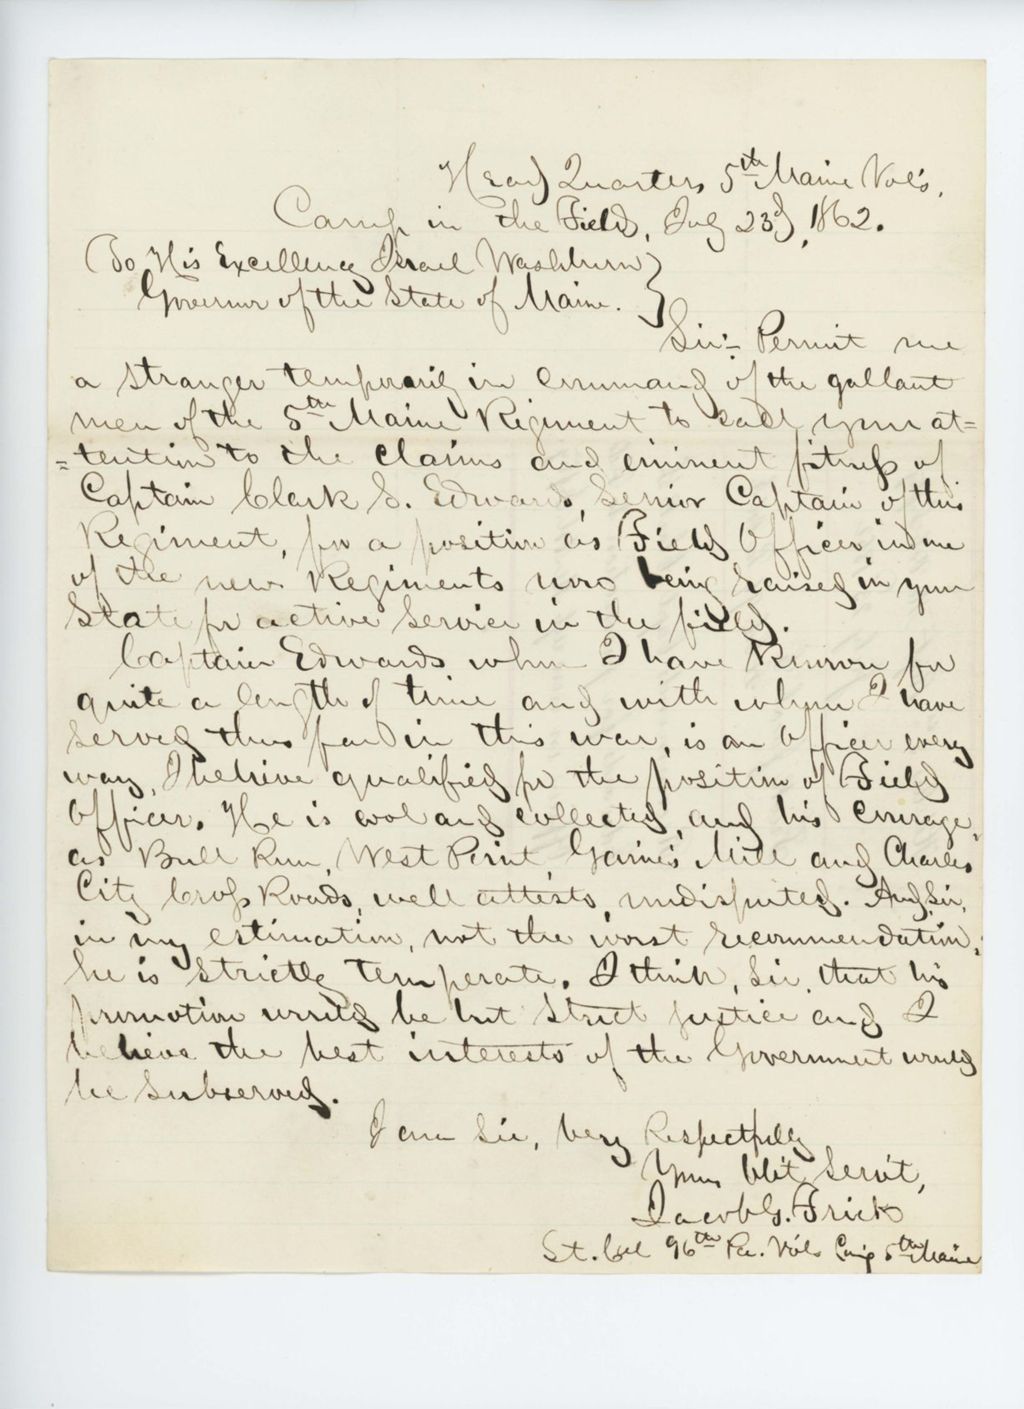 Head Quarters 5th Maine Vol's.
Camp in the Field, July 23d, 1862.
To His Excellency Israel Washburn }
Governor of the State of Maine. }
Sir:- Permit me
a stranger temporarily in command of the gallant
men of the 5th Maine Regiment to call your at=
=tention to the claims and eminent fitness of
Captain Clark S. Edwards, Senior Captain of this
Regiment, for a position as Field Officer in one
of the new Regiments now being raised in your
State for active service in the field.
Captain Edwards whom I have known for
quite a length of time and with whom I have
served thus far in this war, is an Officer every
way, I believe qualified for the position of Field
Officer. He is cool and collected, and his courage,
as Bull Run, West Point, Gaines Mill and Charles
City Cross Roads, well attests, undisputed. And, Sir,
in my estimation, not the worst recommendation,
he is strictly temperate. I think, Sir, that his
promotion would be but strict justice and I
believe the best interests of the Government would
be subserved.
I am Sir, Very Respectfully
Your Obt. Servt,
Jacob G. Frick
Lt. Col 96th Pa. Vols Comg 5th Maine